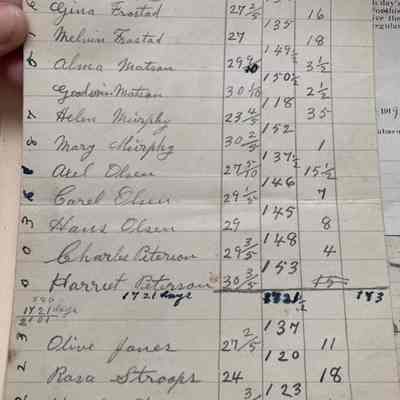 6 Gina Frostad 27 2/5 135 16
7 Melvin Frostad 27 149 1/2 18
8 Alma Matson 29 150 1/2 3 1/2
Goodwin Matson 30 1/10 118 2 1/2
7 Helen Murphy 23 4/5 152 35
8 Mary Murphy 30 2/5 137 1/2 1
Axel Olsen 27 5/10 146 15 1/2
6 Carel Olsen 29 1/5 145 7
3 Hans Olsen 29 148 8
0 Charles Peterson 29 3/5 153 4
0 Harriet Peterson 30 3/5 15
1721 days 1721 1/2 183
1721 days
2101
3 Olive Jones 27 2/5 137 11
2 Rasa Stroops 24 120 18
123